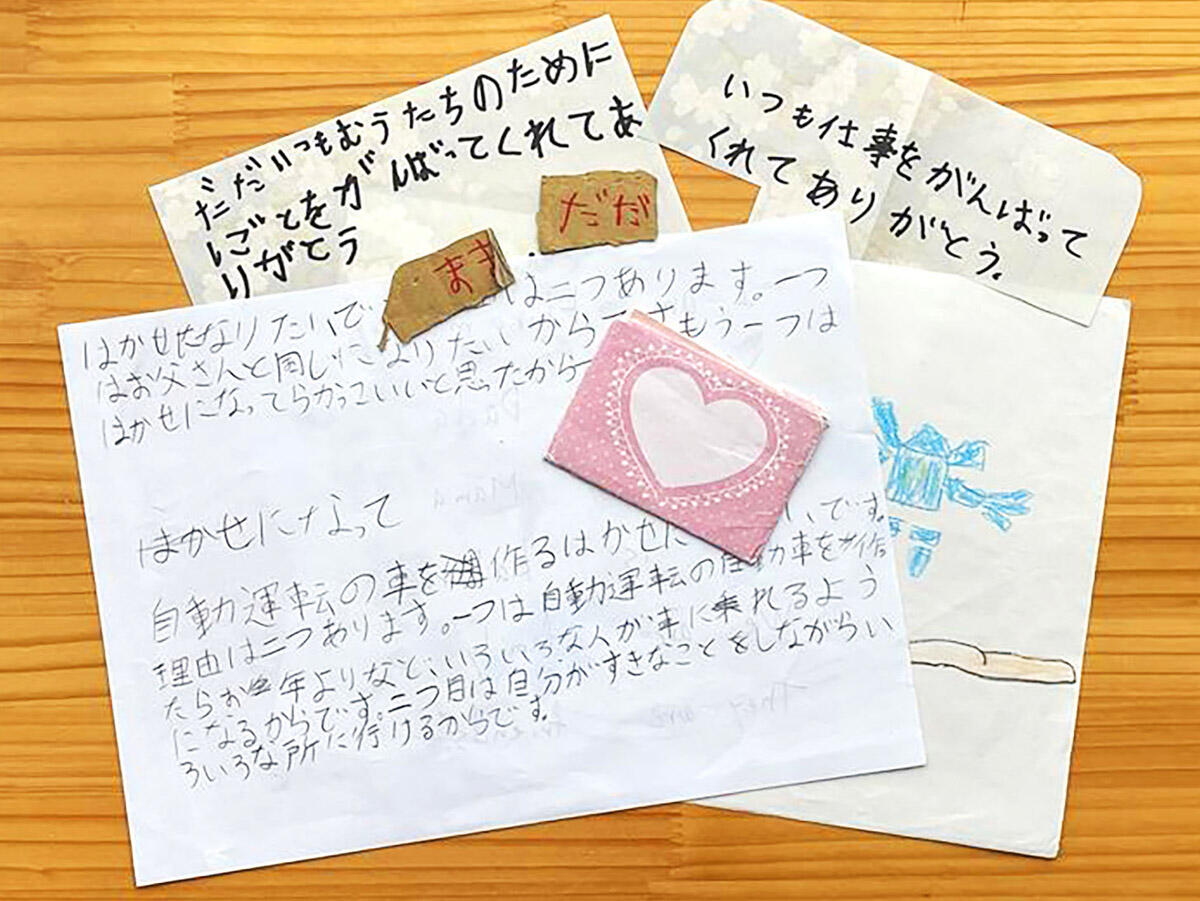 だだいつもむうたちのために
しごとをがんばってくれてあ
りがとう
いつも仕事をがんばって
くれてありがとう。
だだ
はかせになりたいで は二つあります。一つ
はお父さんと同じになりたいから もう一つは
はかせになってらかっこいいと思ったから
はかせになって
自動運転の車を作るはかせに いです。
理由は二つあります。一つは自動運転の自動車を作
たらお年よりなど、いろいろな人が車に乗れるよう
になるからです。二つ目は自分がすきなことをしながらい
ろいろな所に行けるからです。